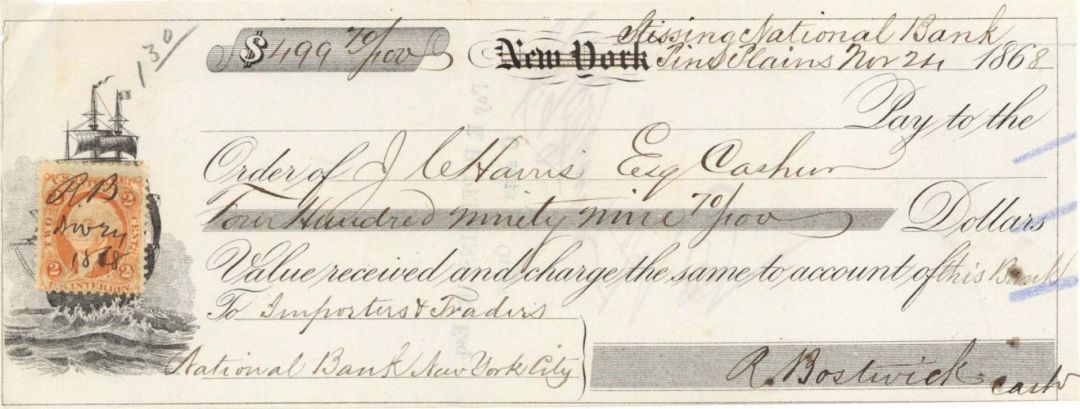 130
$499 70/100
Stissing National Bank
New York Pine Plains Nov 24 1868
Pay to the
Order of J C Harris Esq Cashier
Four Hundred ninety nine 70/100 Dollars
Value received and charge the same to account of this Bank
To Importers & Traders
National Bank New York City
R Bostwick cash
2 2
RB
Nov 24
1868
TWO CENTS
2 2
U.S. INTER. REV.